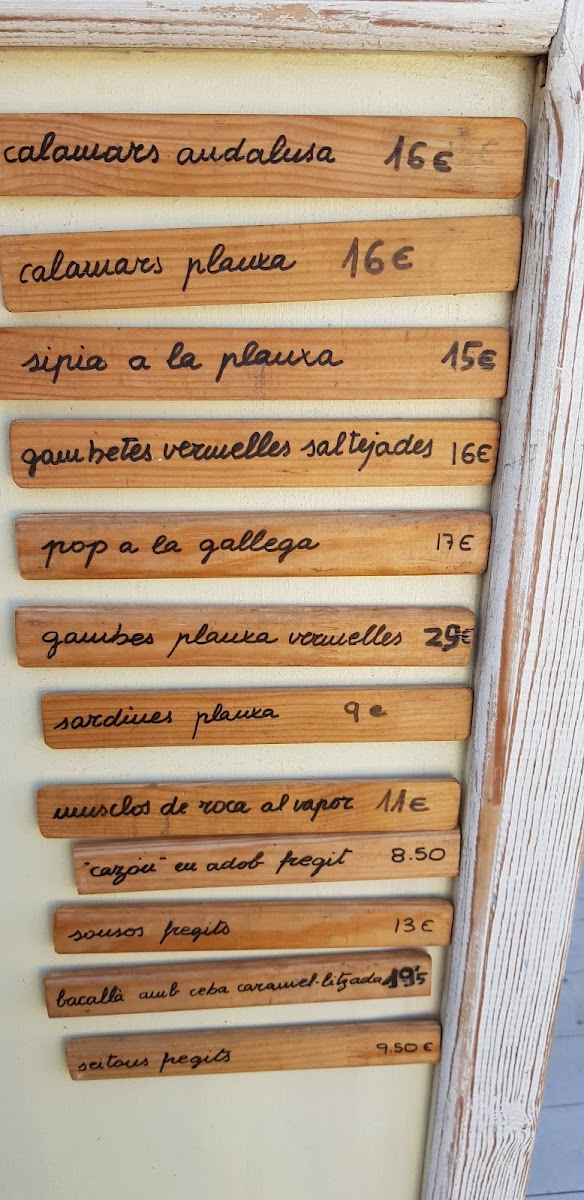 calamars andalusa 16€
calamars planxa 16€
sipia a la planxa 15€
gambetes vermelles saltejades 16€
pop a la gallega 17€
gambes planxa vermelles 29€
sardines planxa 9€
musclos de roca al vapor 11€
"cazón" en adob fregit 8.50
sonsos fregits 13€
bacallà amb ceba caramel·litzada 19'5
seitons fregits 9.50€